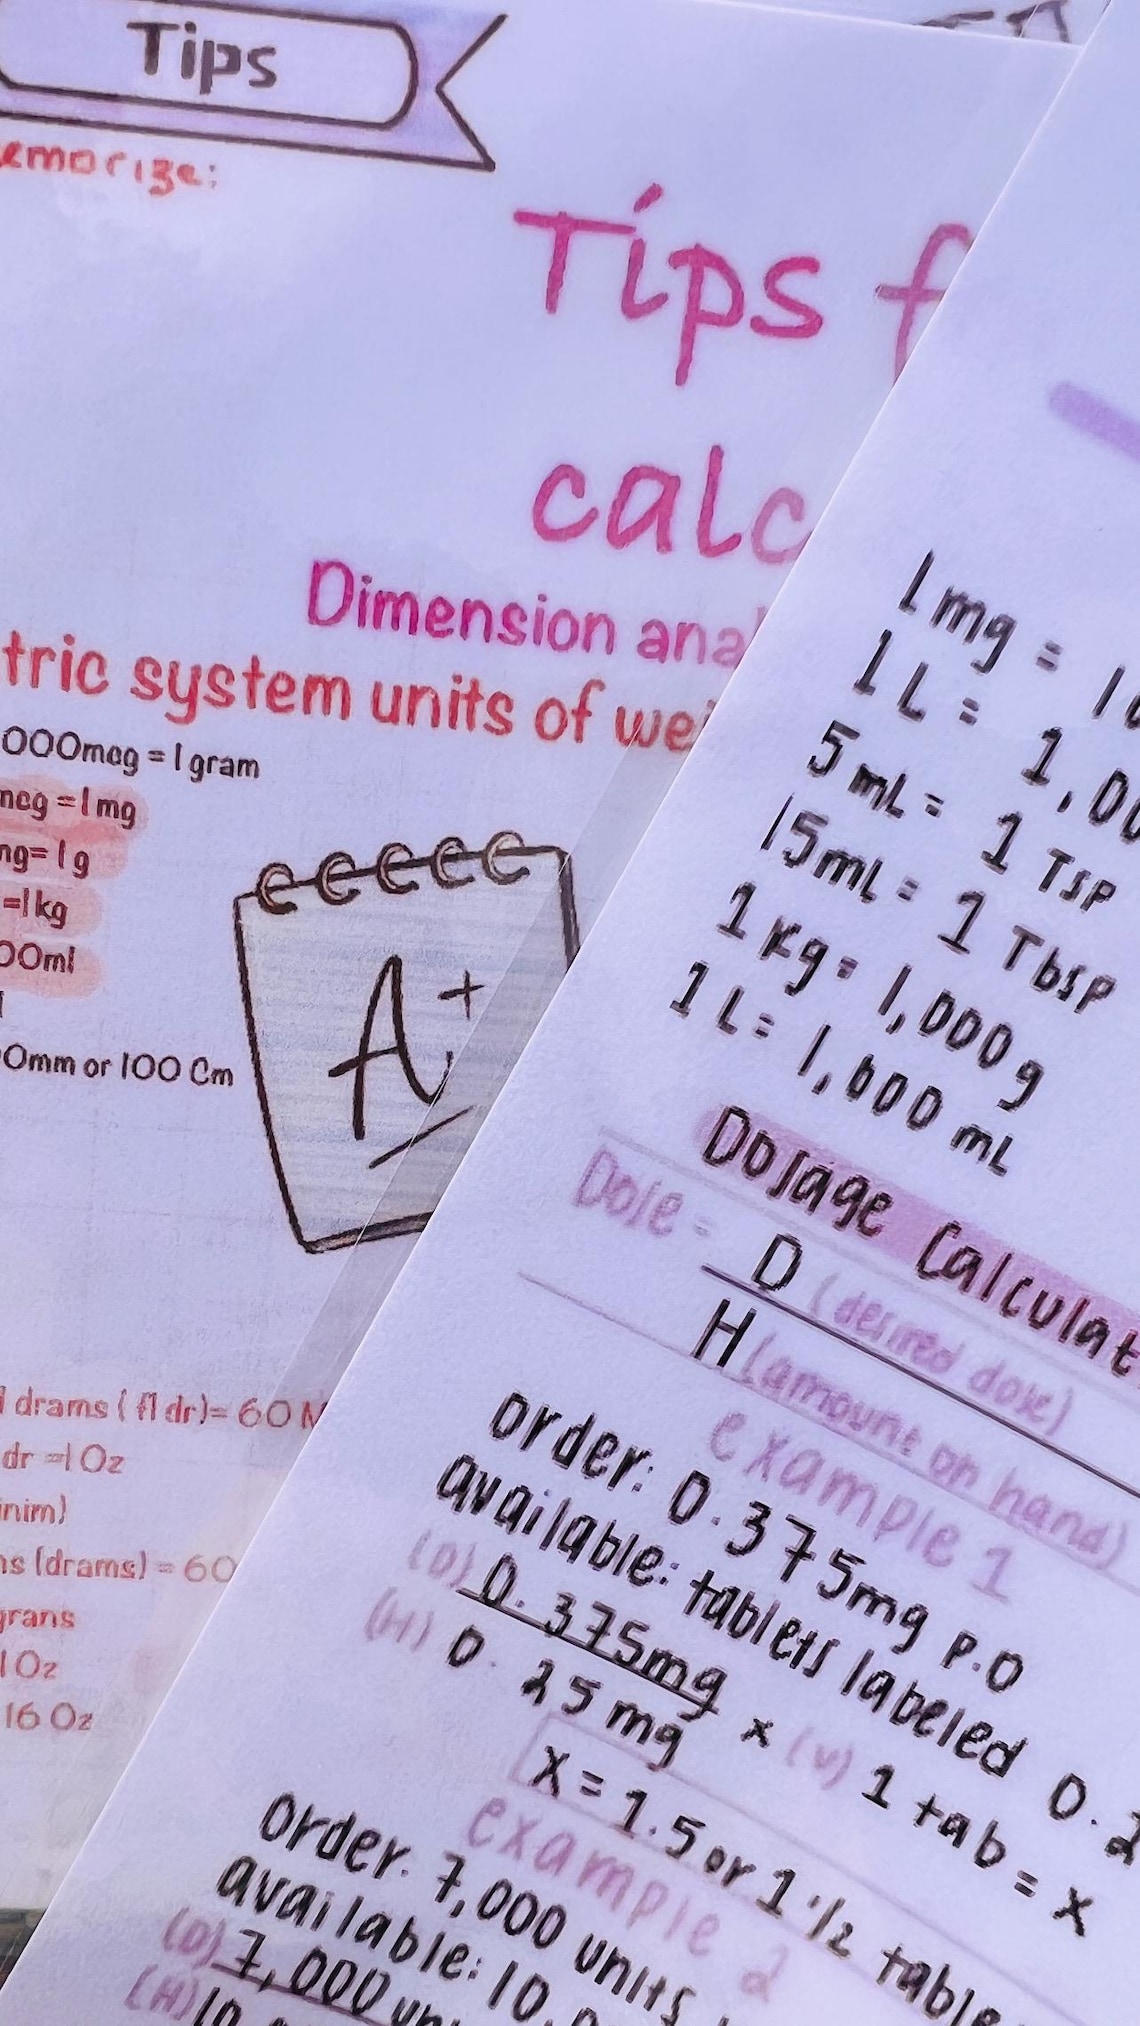 Tips
emorize:
Tips f
calc
Dimension anal
tric system units of wei
000mcg = 1 gram
mcg = 1 mg
mg= 1 g
=1 kg
00ml
0mm or 100 Cm
A+
drams ( fl dr)= 60 M
dr =1 Oz
inim)
ns (drams) = 60
grans
1 Oz
16 Oz
1 mg = 10
1 L = 1,00
5 mL = 1 Tsp
15mL = 1 Tbsp
1 kg = 1,000 g
1 L = 1,000 mL
Dosage Calculat
Dose = D (desired dose)
H (amount on hand)
example 1
order: 0.375mg P.O
available: tablets labeled 0.2
(D) 0.375mg
(H) 0.25 mg x (v) 1 tab = X
X = 1.5 or 1 1/2 table
example 2
order. 7,000 units
available: 10,0
(D) 7,000 uni
(H) 10